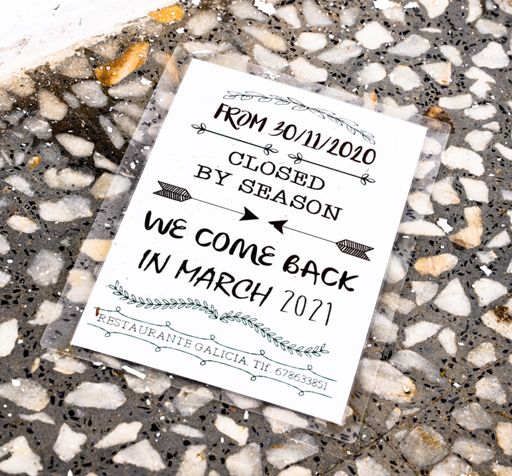 FROM 30/11/2020
CLOSED
BY SEASON
WE COME BACK
IN MARCH 2021
RESTAURANTE GALICIA. Tlf. 678633851